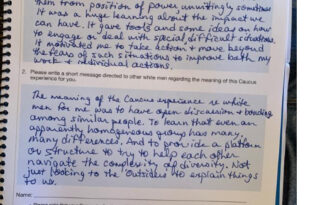 them from position of power, unwittingly sometimes
It was a huge learning about the impact we
can have. It gave tools and some ideas on how
to engage or deal with special difficult situations.
It motivated me to take action & move beyond
the fears of such situations to improve both my
work & individual actions.
2. Please write a short message directed to other white men regarding the meaning of this Caucus
experience for you.
The meaning of the Caucus experience re white
men for me was to have open discussion & bonding
among similar people. To learn that even an
apparently homogeneous group has many,
many differences. And to provide a platform
or structure to try to help each other
navigate the complexity of diversity. Not
just looking to the "outsiders" to explain things
to us.
Name: